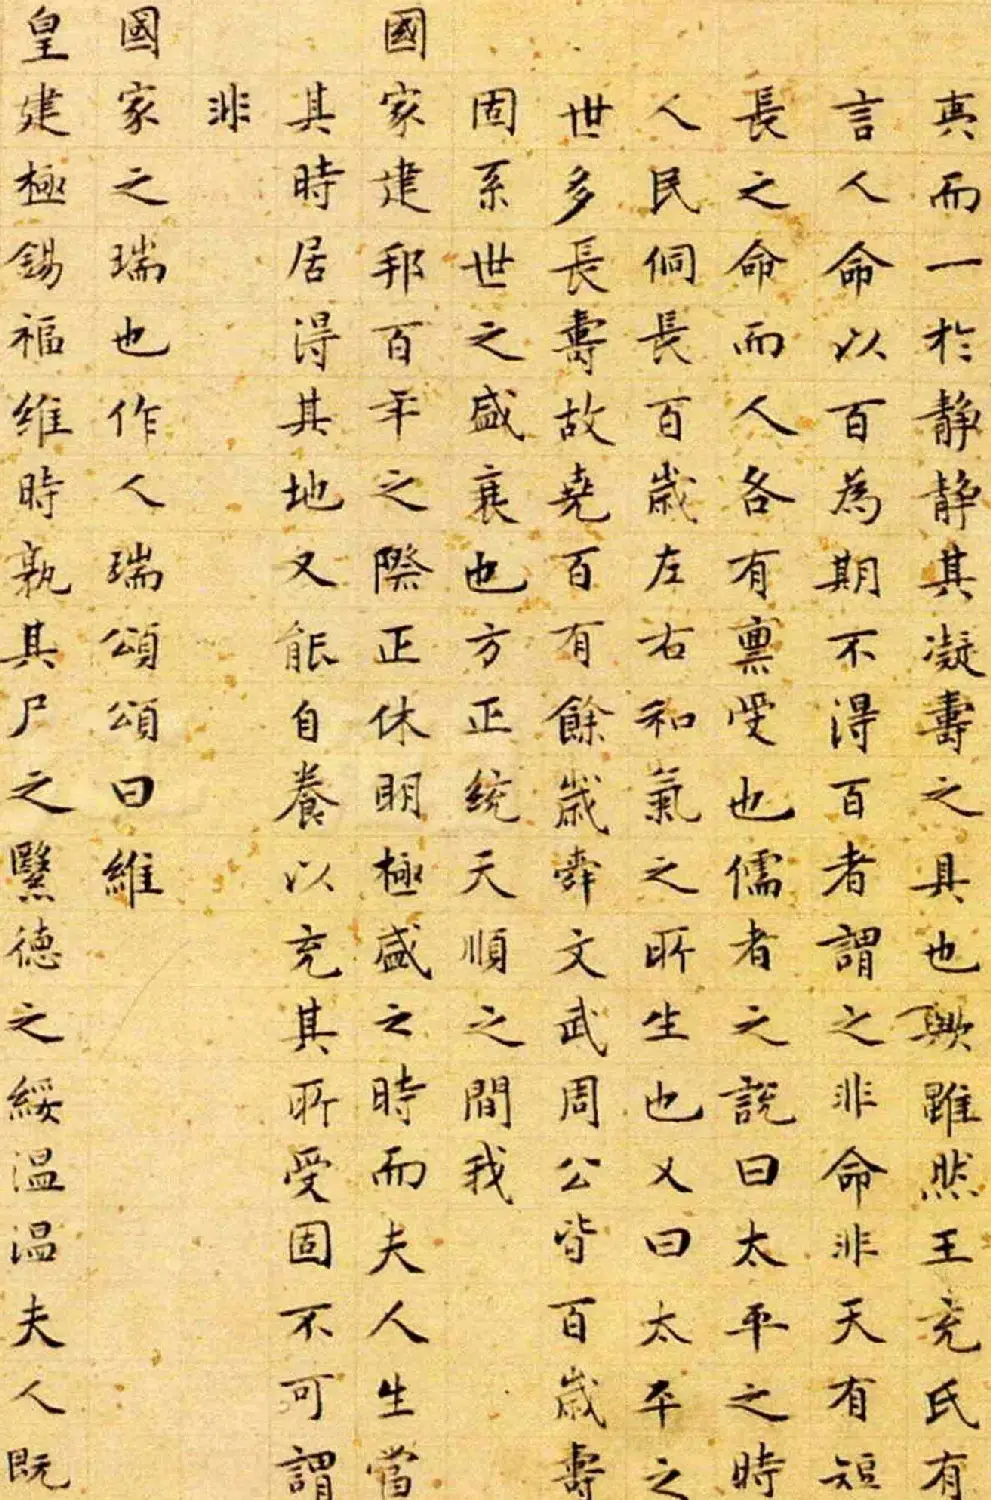 真而一於静静其凝壽之具也歟雖然王充氏有
言人命以百為期不得百者謂之非命非天有短
長之命而人各有稟受也儒者之說曰太平之時
人民侗長百歲左右和氣之所生也又曰太平之
世多長壽故堯百有餘歲舜文武周公皆百歲壽
固系世之盛衰也方正統天順之間我
國家建邦百年之際正休明極盛之時而夫人生當
其時居得其地又能自養以充其所受固不可謂
非
國家之瑞也作人瑞頌頌曰維
皇建極錫福維時孰其尸之緊德之綏温温夫人既